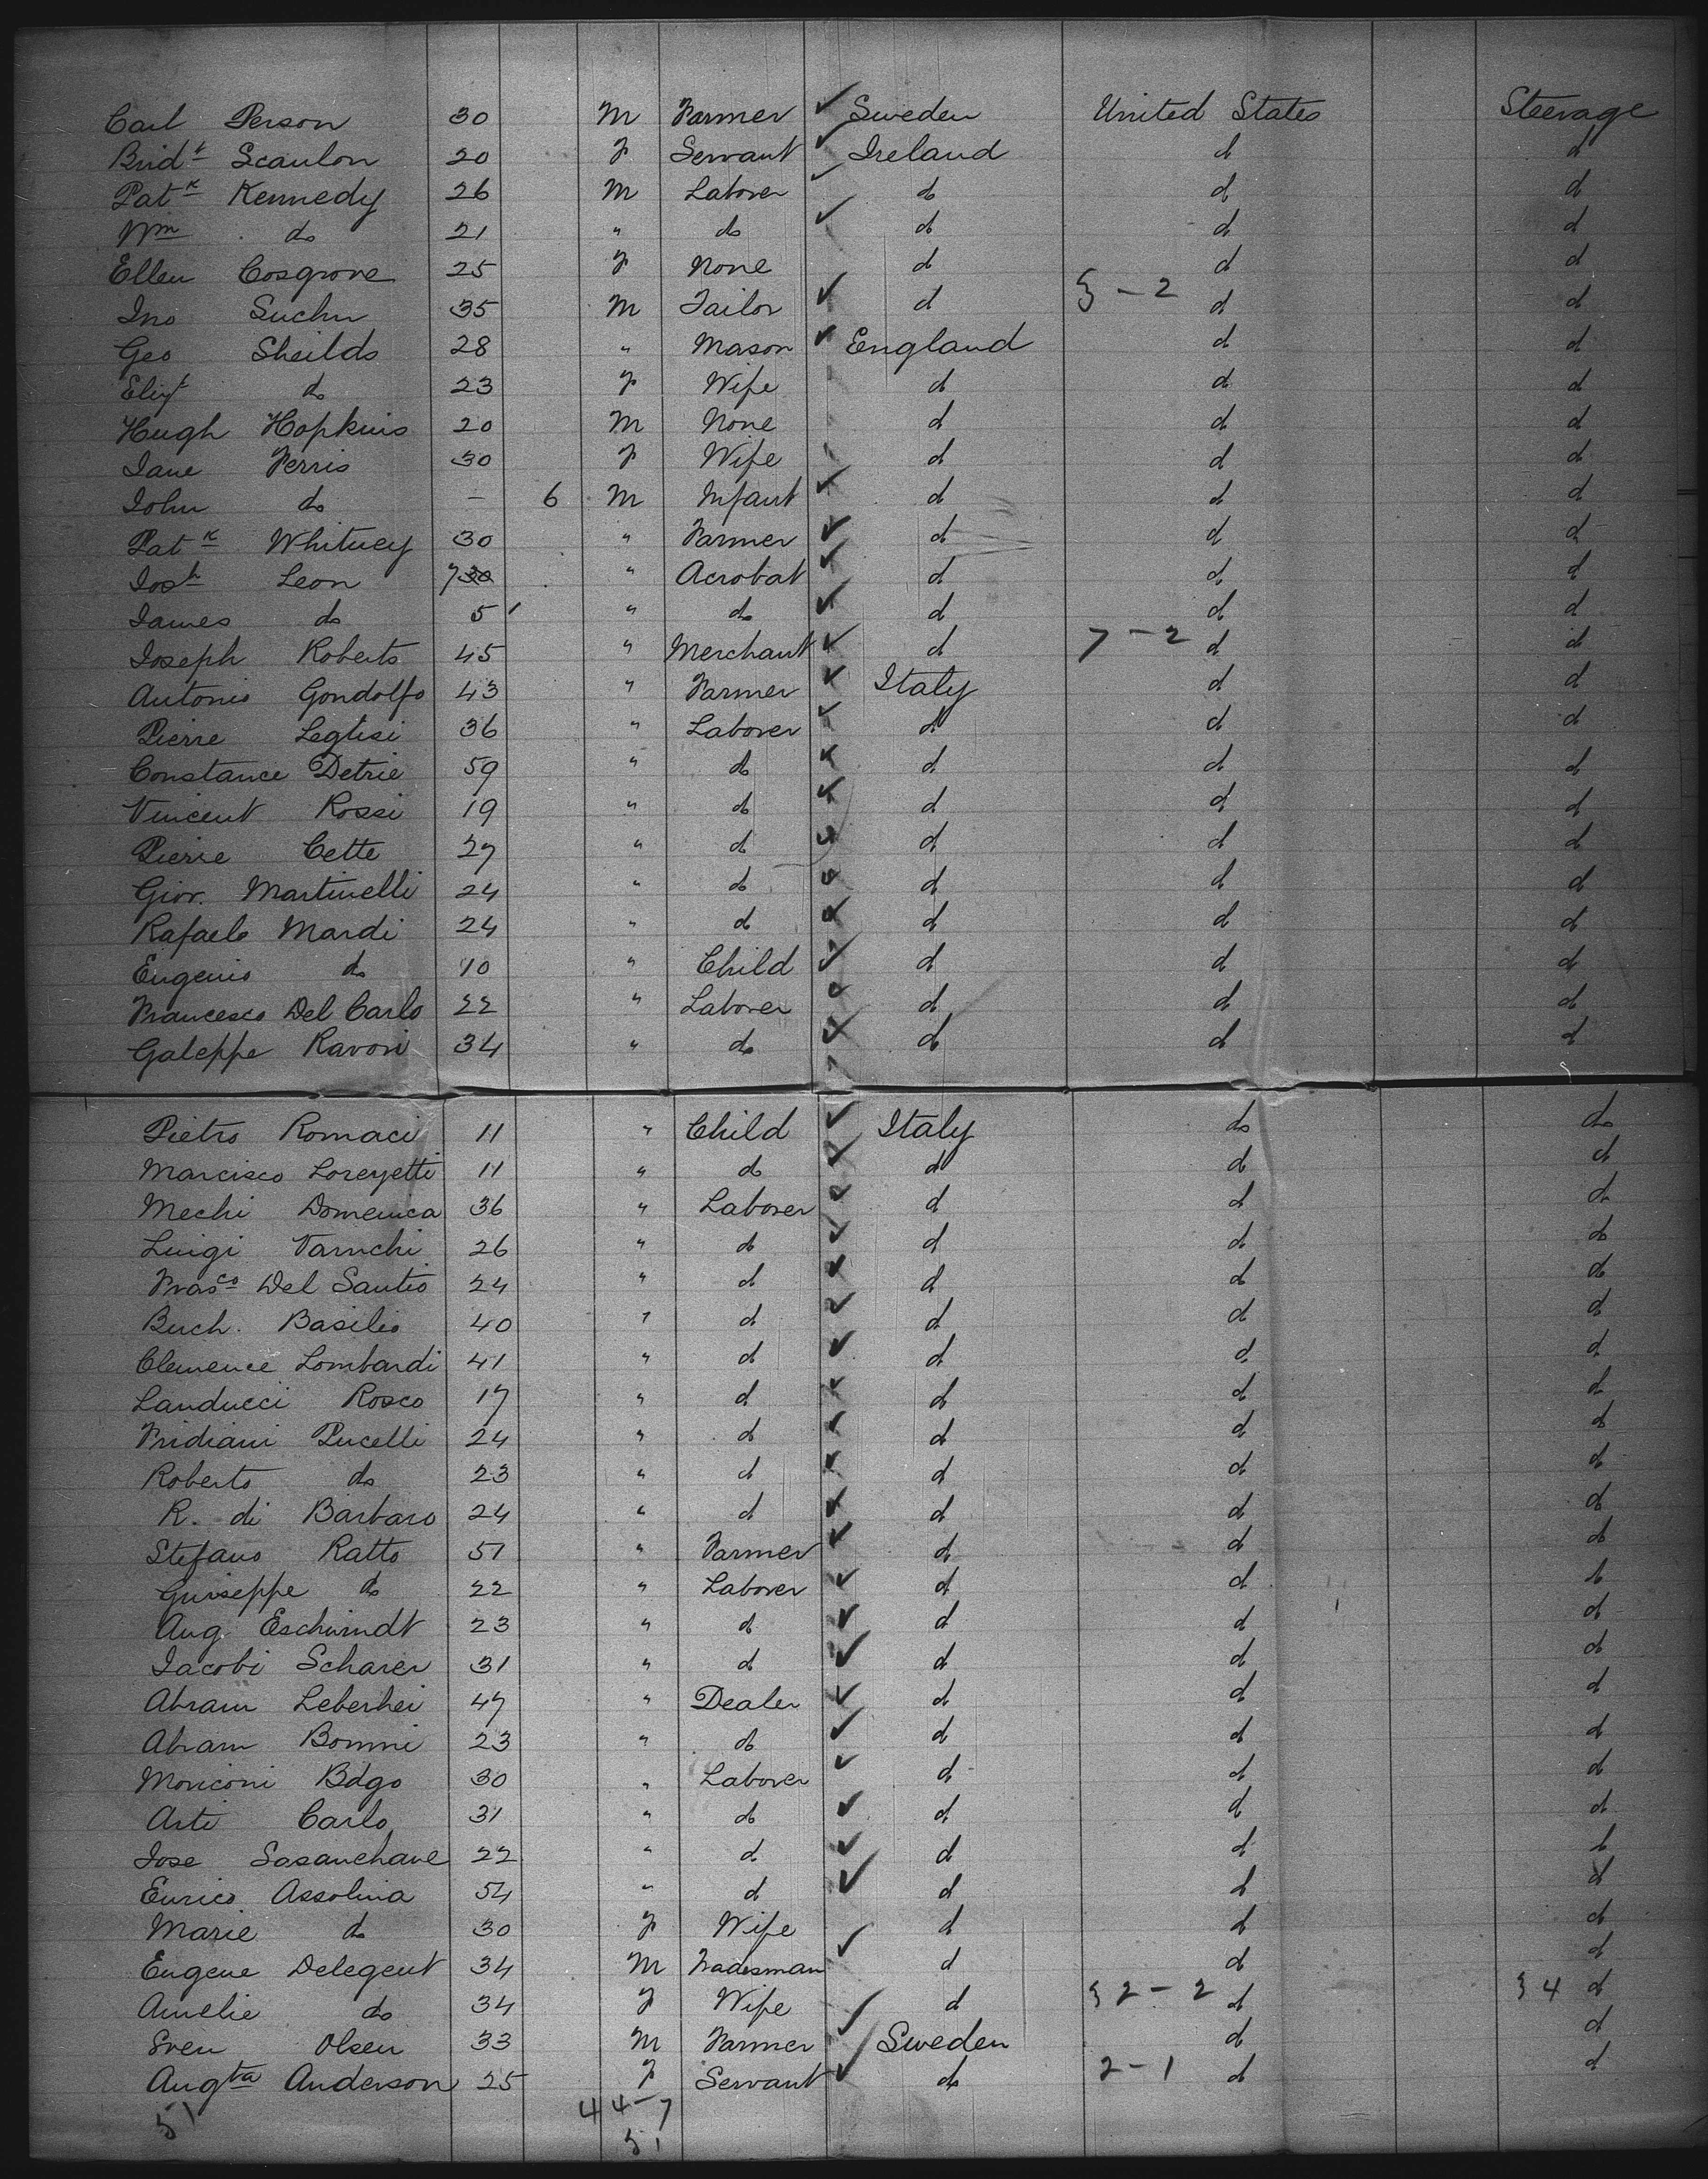 Carl Person 30 M Farmer ✓ Sweden United States Steerage
Bridt Scanlon 20 F Servant ✓ Ireland d d
Patk Kennedy 26 M Laborer ✓ do d d
Wm do 21 " do ✓ d d d
Ellen Cosgrove 25 F None d d d
Jno 35 M Tailor ✓ d 5-2 d d
Geo Sheilds 28 " Mason ✓ England d d
Elizt do 23 F Wife d d d
Hugh Hopkins 20 M None d d d
Jane Ferris 30 F Wife d d d
John do – 6 M Infant ✓ d d d
Patk Whitney 30 " Farmer ✓ d d d
Josh Leon 7 30 " Acrobat ✓ d d d
James do 5 " do ✓ d d d
Joseph Roberts 45 " Merchant ✓ d 7-2 d d
Antonio Gondolfo 43 " Farmer ✓ Italy d d
Pierre Legtisi 36 " Laborer ✓ d d d
Constance Detrie 59 " do ✓ d d d
Vincent Rossi 19 " do ✓ d d d
Pierre Cette 27 " d ✓ d d d
Giov. Martinelli 24 " d ✓ d d d
Rafaelo Mardi 24 " d ✓ d d d
Eugenio do 10 " Child ✓ d d d
Francesco Del Carlo 22 " Laborer ✓ d d d
Galeppe Ravori 34 " do ✓ d d d
Pietro Romaci 11 " Child ✓ Italy do do
Marcisco Loreyetti 11 " do ✓ d d d
Mechi Domenica 36 " Laborer ✓ d d d
Luigi 26 " do ✓ d d d
Frasco Del Santio 24 " d ✓ d d d
Buch. Basilio 40 " d ✓ d d d
Clemence Lombardi 41 " d ✓ d d d
Landucci Rosco 17 " d ✓ d d d
Fridiani Pucelli 24 " d ✓ d d d
Roberto do 23 " d ✓ d d d
R. di Barbaro 24 " d ✓ d d d
Stefano Ratto 51 " Farmer ✓ d d d
Guiseppe do 22 " Laborer ✓ d d d
Aug. Eschwindt 23 " d ✓ d d d
Jacobi Scharer 31 " d ✓ d d d
Abram Leberhei 47 " Dealer ✓ d d d
Abram Bommi 23 " do ✓ d d d
Moriconi Bdgo 30 " Laborer ✓ d d d
Arti Carlo 31 " do ✓ d d d
Jose Sasanchane 22 " d ✓ d d d
Enrico Assolina 54 " d ✓ d d d
Marie do 30 F Wife d d d
Eugene Delegent 34 M Tradesman ✓ d d d
Amelie do 34 F Wife d 32-2 d 34 d
Sven Olsen 33 M Farmer ✓ Sweden d d
Augta Anderson 25 F Servant ✓ do 2-1 d d
51 44-7
51